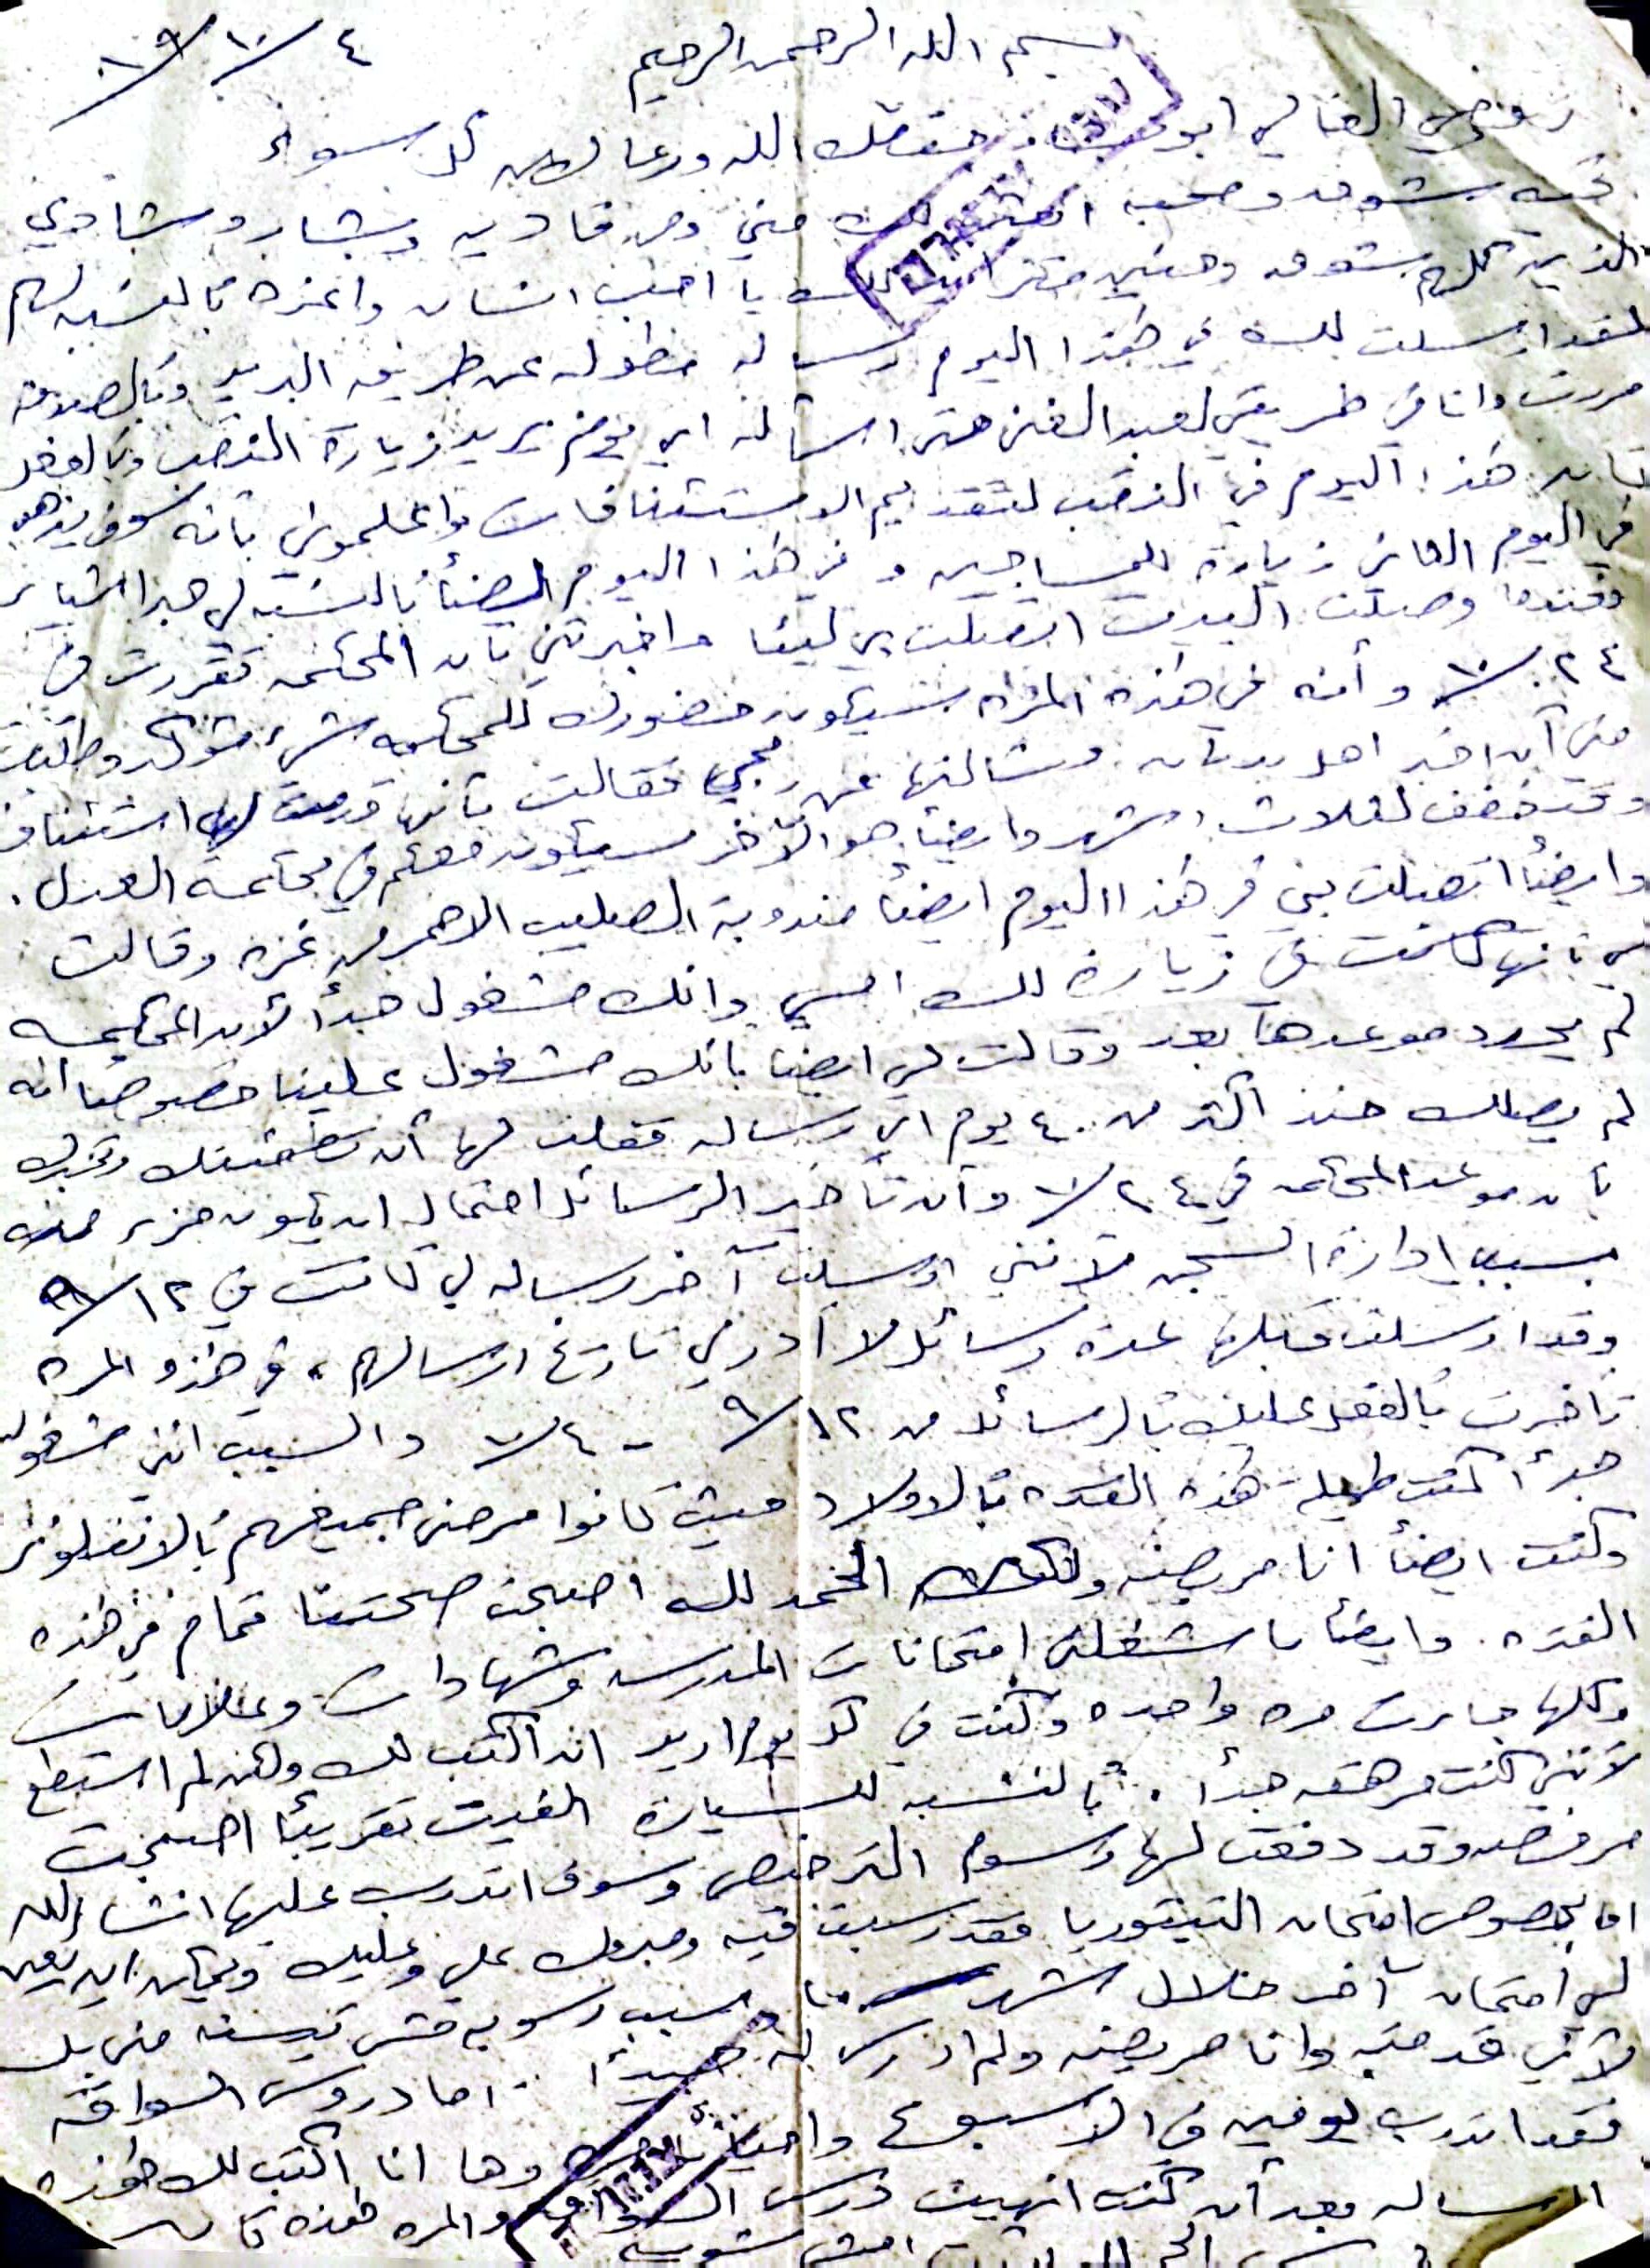 بسم الله الرحمن الرحيم ٤/١٠/
زوجي الغالي ابو حفظك الله ورعاك من كل سوء
تحيه شوق ومحبه لك مني ومن فاديه وبشار وشادي
الذين كلهم شوق وحنين لك يا احب انسان واعزه بالنسبه لهم
لقد ارسلت لك في هذا اليوم رساله مطوله عن طريق البريد وبالصدفه
مررت وانا في طريقي لعبد الغني حتى اسأله اي يوم يريد زيارة النقب وبالفعل
كان هذا اليوم في النقب لتقديم الاستئنافات واعلموني بأنه سوف يذهب
في اليوم الثاني زيارة للمساجين وفي هذا اليوم ايضاً بالنسبه لي
وعندما وصلت البيت اتصلت بي ليئا واخبرتني بان المحكمه تقررت في
٢٤/١٠ وأنه في هذه المره سيكون حضورك للمحكمه شيء مؤكد وطلبت
مني أن اخبر اهل عدنان وسألتها عن فقالت بأنها قدمت له استئناف
وقد خفف لثلاث اشهر وايضاً هو الآخر سيكون معكم في محكمة العدل .
وايضاً اتصلت بي في هذا اليوم ايضاً مندوبة الصليب الاحمر من غزه وقالت
لي بأنها كانت في زيارة لك امس وانك مشغول جداً لأن المحكمه
لم يحدد موعدها بعد وقالت لي ايضاً بانك مشغول علينا خصوصاً أنه
لم يصلك منذ اكثر من ٤٠ يوم اي رساله فقلت لها أن تطمئنك وتخبرك
بأن موعد المحكمه في ٢٤/١٠ وأن تأخير الرسائل احتمال ان يكون جزء منه
بسبب ادارة السجن لأنني ارسلت آخر رساله لي كانت في ١٢/٩
وقد ارسلت قبلها عدة رسائل لا أدري تاريخ ارسالهم ، في هذه المره
تأخرت بالفعل عليك بالرسائل من ١٢/٩ - ٤/١٠ والسبب انني مشغوله
جداً كنت طيلة هذه الفتره بالاولاد حيث كانوا مرضى جميعهم بالانفلونزا
وكنت ايضاً انا مريضه ولكن الحمد لله اصبحت صحتنا تمام في هذه
الفتره . وايضاً ما شغلني امتحانات المدرسه وشهادات وعلامات
وكلها جاءت مره واحده وكنت في كل يوم اريد ان اكتب لك ولكن لم استطع
لأنني كنت مرهقه جداً . بالنسبه للسياره الفيت تقريباً اصبحت
مرخصه وقد دفعت لها رسوم الترخيص وسوف اتدرب عليها انشاء الله
اما بخصوص امتحان التيئوريا فقد رسبت فيه ومبروك علي وعليك ويمكن ان يعين
لي امتحان آخر خلال شهر وسبب رسوبي
لأنني قدمته وانا مريضه ولم ادرس له جيداً . اما دروس السواقه
فقد اتدرب يومين في الاسبوع واحياناً وها انا اكتب لك هذه
الرساله بعد أن كنت انهيت درس السواقه والمره هذه كان